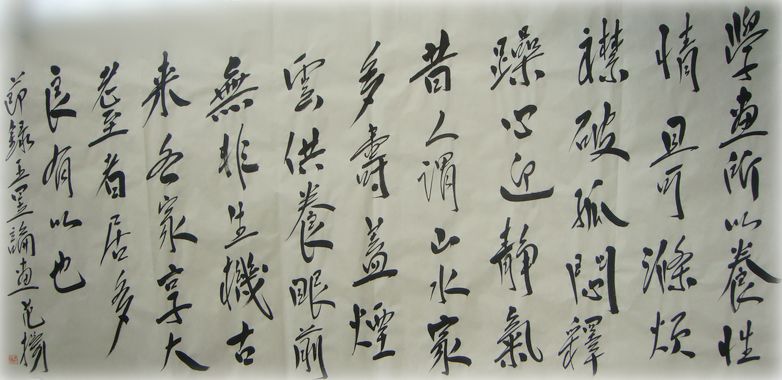 學畫所以養性
情且可滌煩
襟破孤悶釋
躁心迎靜氣
昔人謂山水家
多壽蓋煙
雲供養眼前
無非生機古
来各家享大
耋者居多
良有以也
節錄王昱論畫